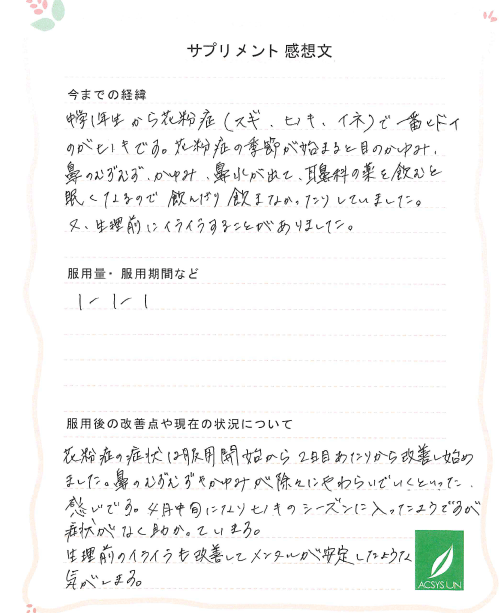 サプリメント 感想文
今までの経緯
中学1年生から花粉症（スギ、ヒノキ、イネ）で一番ヒドイ
のがヒノキです。花粉症の季節が始まると目のかゆみ、
鼻のむずむず、かゆみ、鼻水が出て、耳鼻科の薬を飲むと
眠くなるので飲んだり飲まなかったりしていました。
又、生理前にイライラすることがありました。
服用量・服用期間など
1－1－1
服用後の改善点や現在の状況について
花粉症の症状は服用開始から2日目あたりから改善し始め
ました。鼻のむずむずやかゆみが除々にやわらいでいくといった
感じです。4月中旬になりヒノキのシーズンに入ったようですが
症状がなく助かっています。
生理前のイライラも改善してメンタルが安定したような
気がします。
ACSYS UN